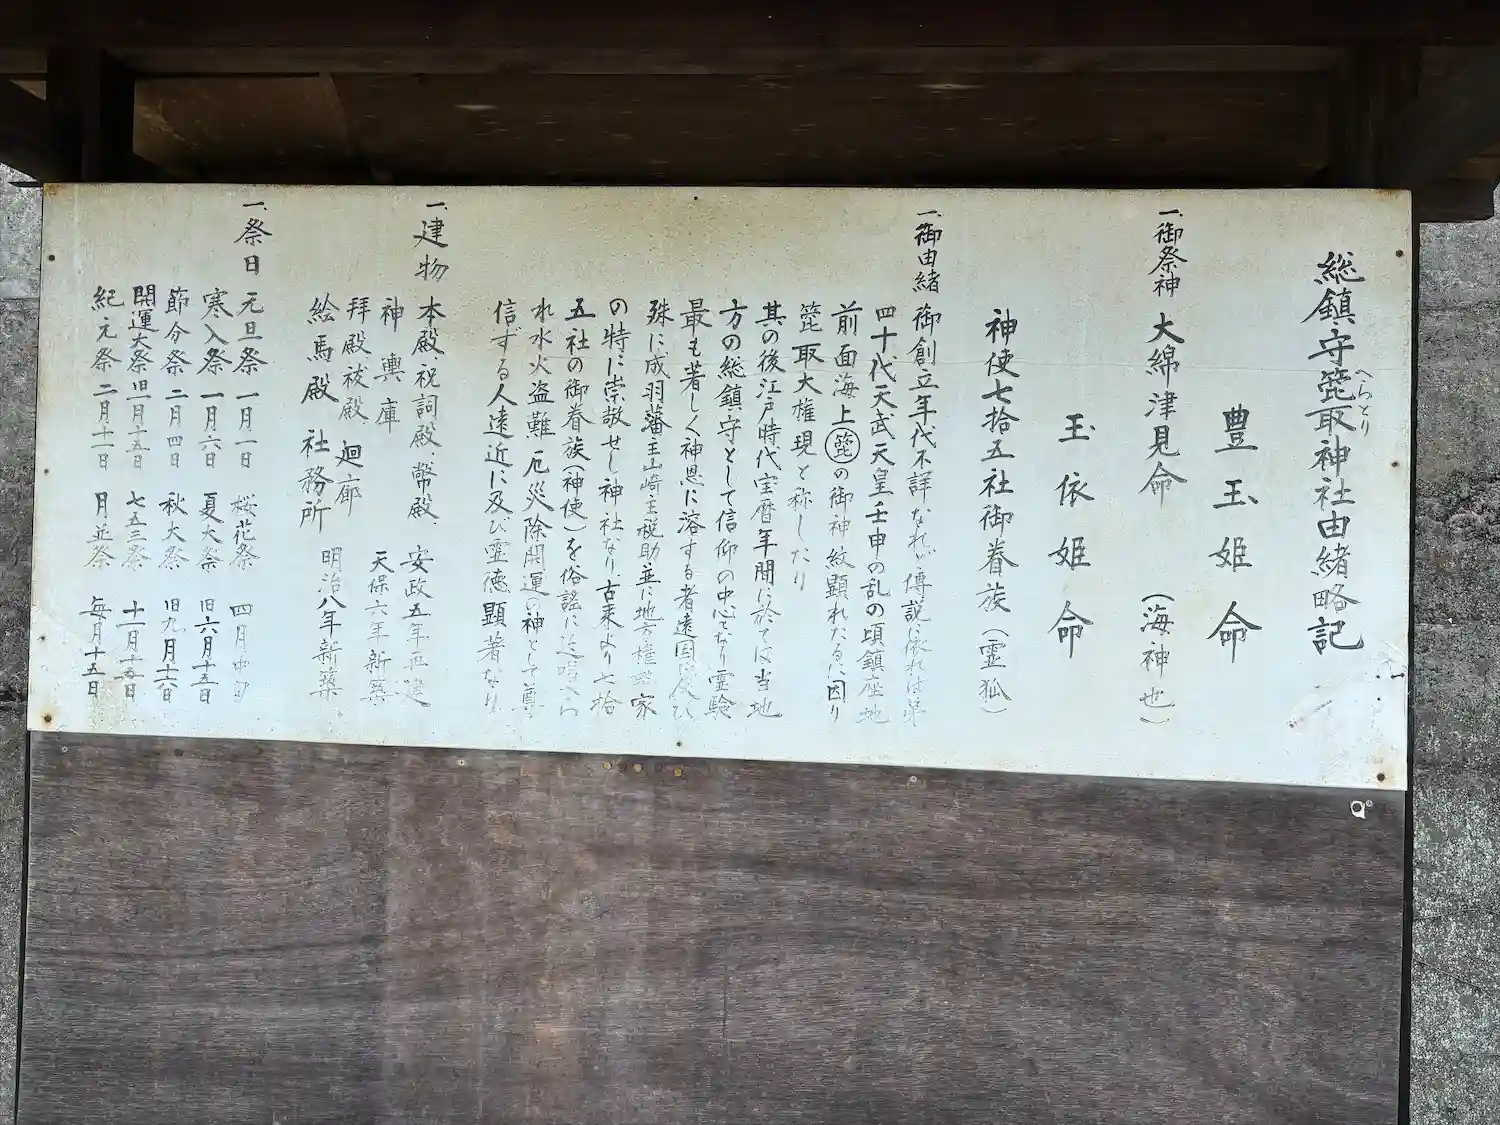 総鎮守箆取神社由緒略記
へらとり
豊玉姫命
一、御祭神 大綿津見命 (海神也)
玉依姫命
神使七拾五社御眷族(霊狐)
一、御由緒 御創立年代不詳なれど傳説に依れば第
四十代天武天皇壬申の乱の頃鎮座地
前面海上箆の御神紋顕れたるに因り
箆取大権現と称したり
其の後江戸時代宝暦年間に於ては当地
方の総鎮守として信仰の中心となり霊験
最も著しく神恩に溶する者遠国に及び
殊に成羽藩主山崎主税助並に地方権 家
の特に崇敬せし神社なり古来より七拾
五社の御眷族(神使)を俗謡に 唱へら
れ水火盗難厄災除開運の神として尊
信ずる人遠近に及び霊徳顕著なり
一、建物 本殿祝詞殿、幣殿、 安政五年再建
神輿庫 天保六年新築
拝殿祓殿、廻廊
絵馬殿 社務所 明治八年新築
一、祭日 元旦祭 一月一日 桜花祭 四月中旬
寒入祭 一月六日 夏大祭 旧六月十五日
節分祭 二月四日 秋大祭 旧九月十六日
開運大祭 旧一月十五日 七五三祭 十一月十五日
紀元祭 二月十一日 月並祭 毎月十五日